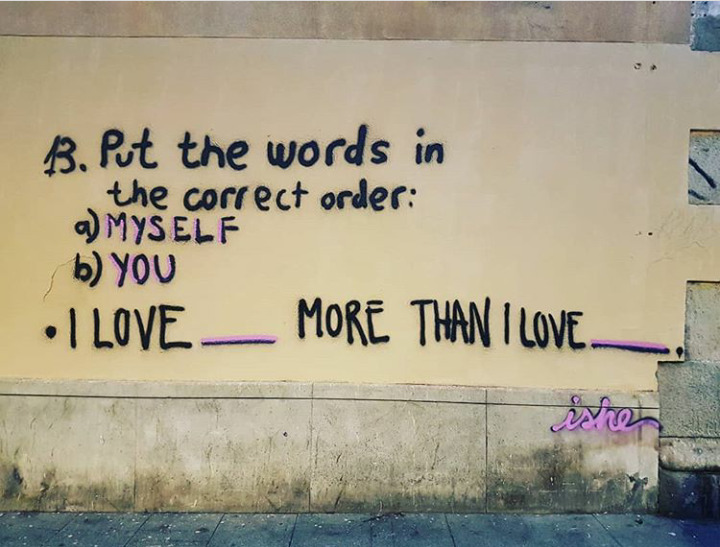 13. Put the words in
the correct order:
a) MYSELF
b) YOU
• I LOVE ___ MORE THAN I LOVE ___.
ishe